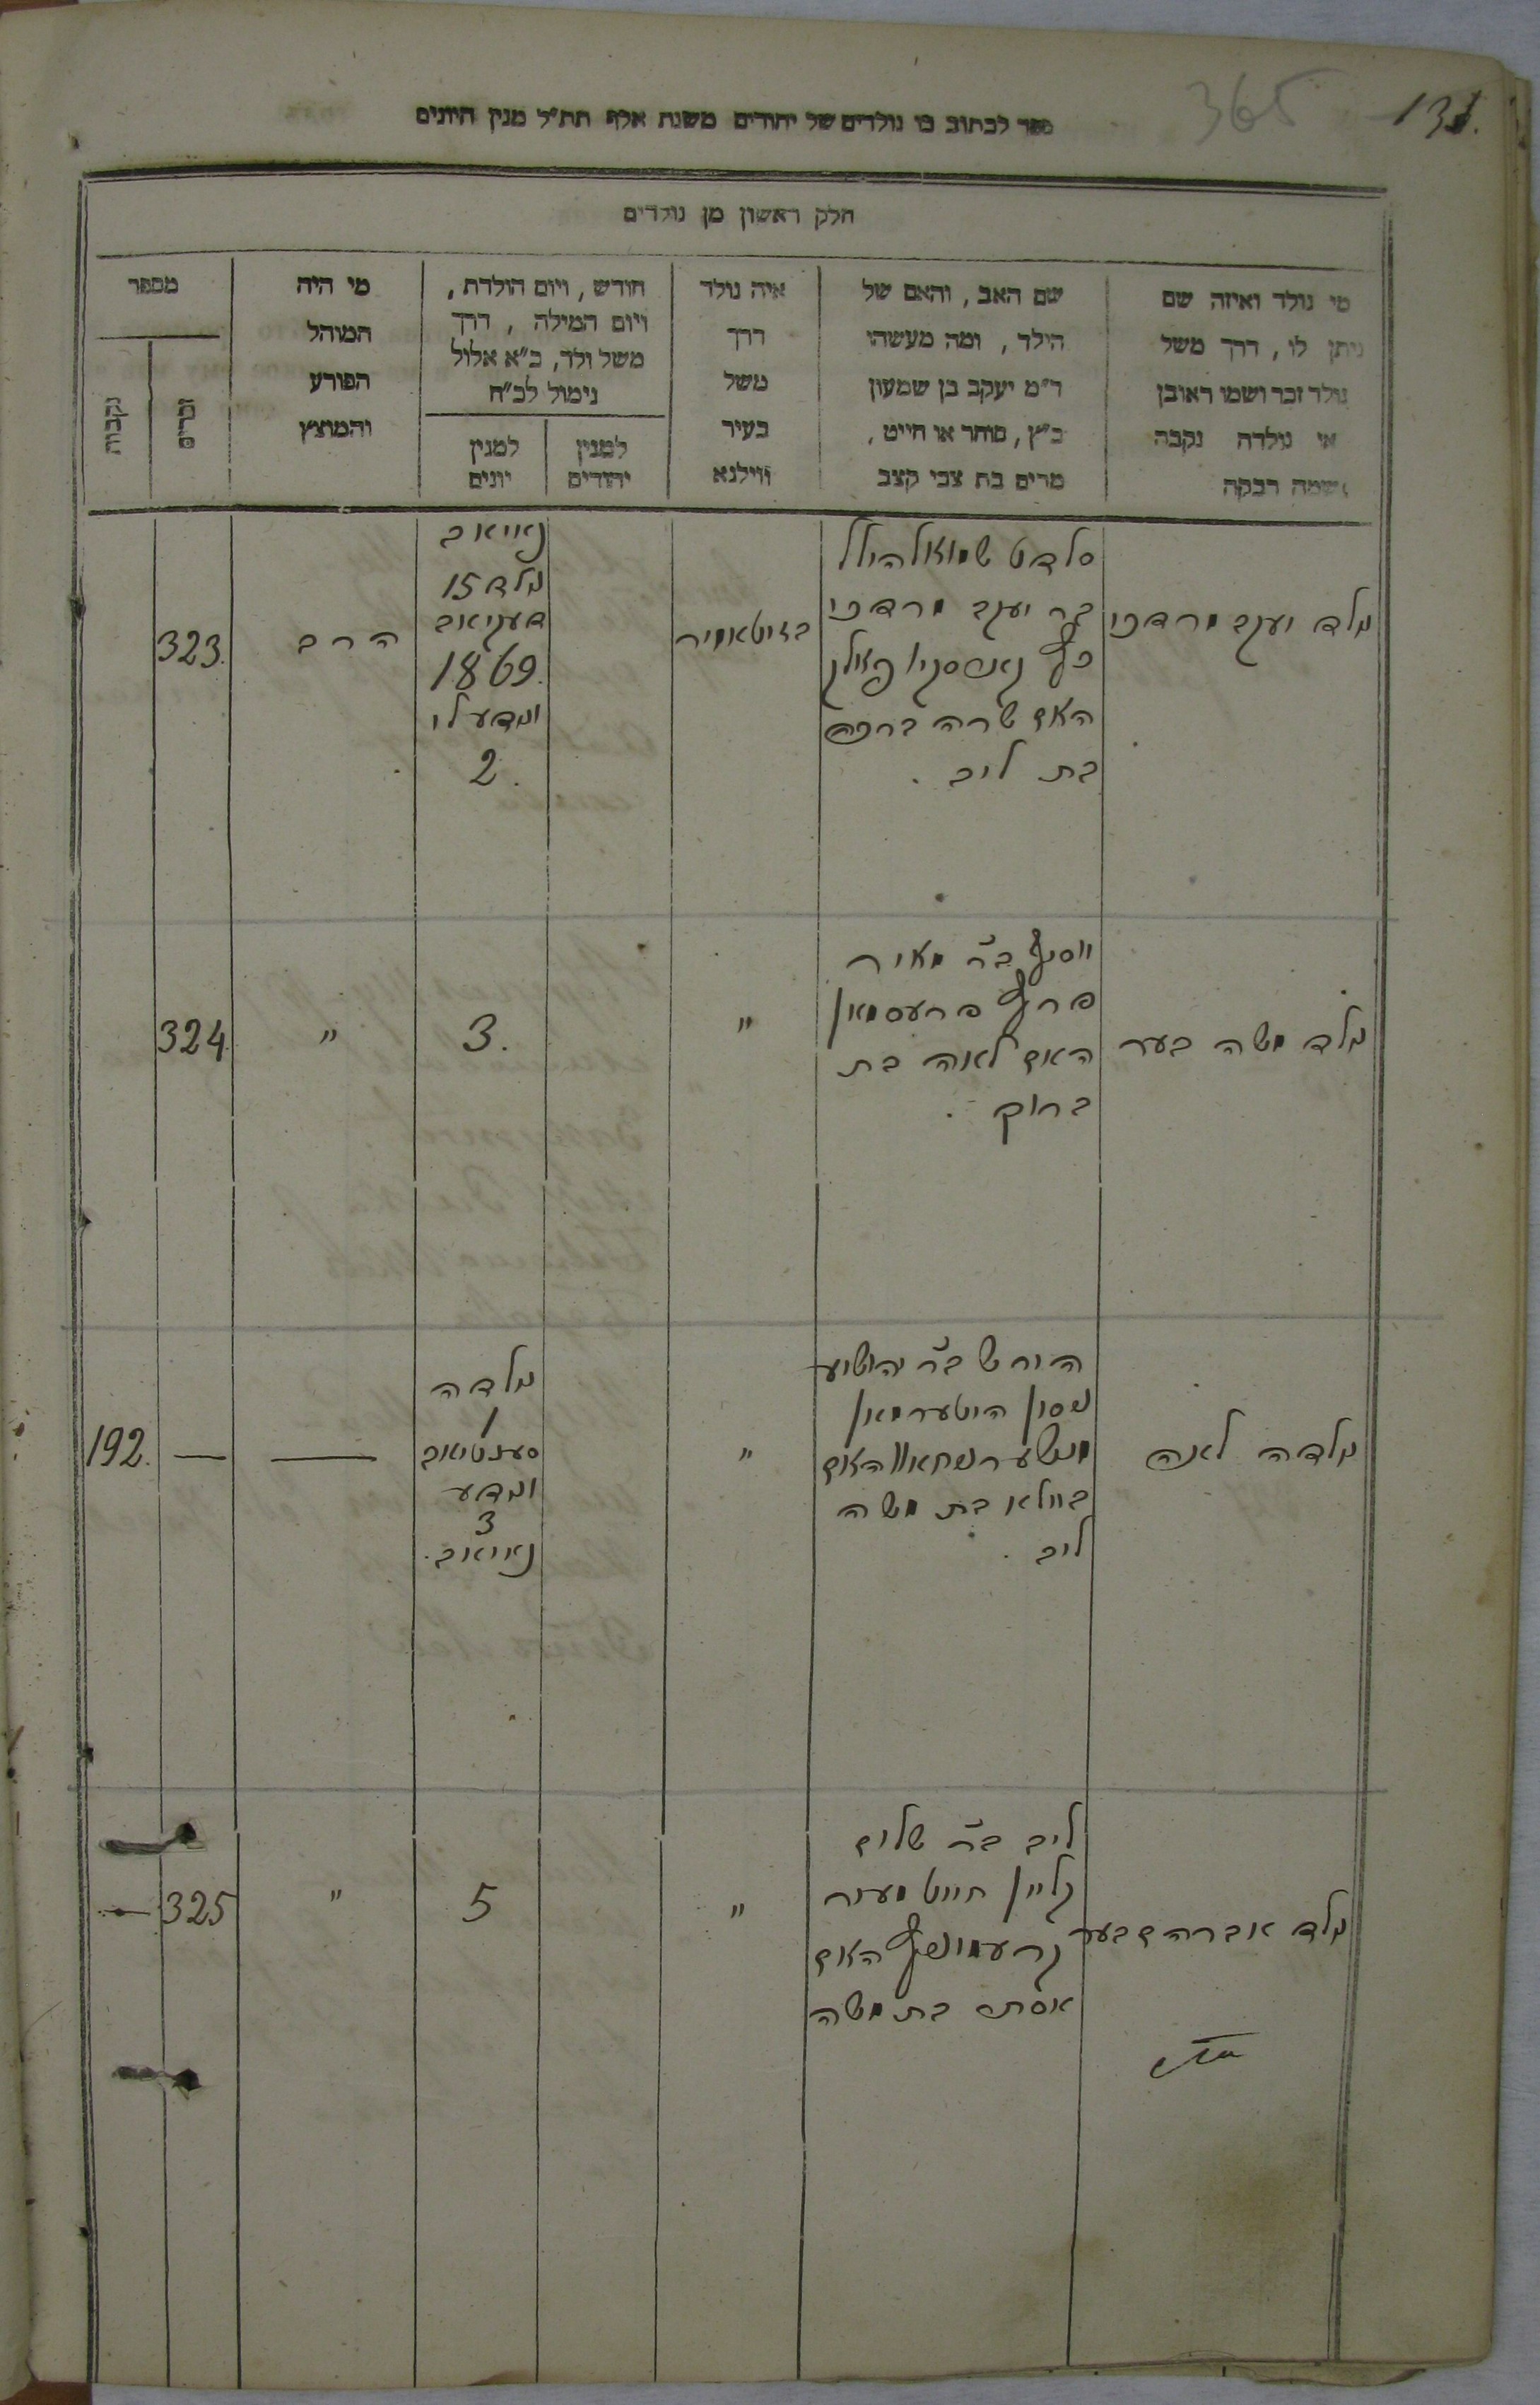 365
131.
ספר לכתוב בו נולדים של יהודים משנת אלף תת״ל מנין היונים
חלק ראשון מן נולדים
מי נולד ואיזה שם
ניתן לו, דרך משל
נולד זכר ושמו ראובן
או נולדה נקבה
ושמה רבקה
שם האב, והאם של
הילד, ומה מעשהו
ר״מ יעקב בן שמעון
כ״ץ, סוחר או חייט,
מרים בת צבי קצב
איה נולד
דרך
משל
בעיר
ווילנא
חודש, ויום הולדת,
ויום המילה, דרך
משל ולד, כ״א אלול
נימול לכ״ח
למנין
יהודים
למנין
יונים
מי היה
המוהל
הפורע
והמוצץ
מספר
זכרים
נקבות
נולד יעקב מרדכי
סלדט שמואל הילל
בר יעקב מרדכי
האם שרה ברכה
בת ליב.
בזיטאמיר
נאויאב
נולד 15
דעקיאב
1869.
2.
הרב
323.
נולד משה בער
יוסף ב״ר מאיר
האם לאה בת
ברוך.
"
3.
"
324.
נולדה לאה
הירש ב״ר יהושע
נטסון היטערמאן
האם
ביילא בת משה
ליב.
"
נולדה
1
סענטיאב
ונודע
3
נאויאב.
—
—
192.
נולד אברהם בער
ליב ב״ר שלום
קליין חייט מעיר
האם
אסתר בת משה
"
5
"
325
—